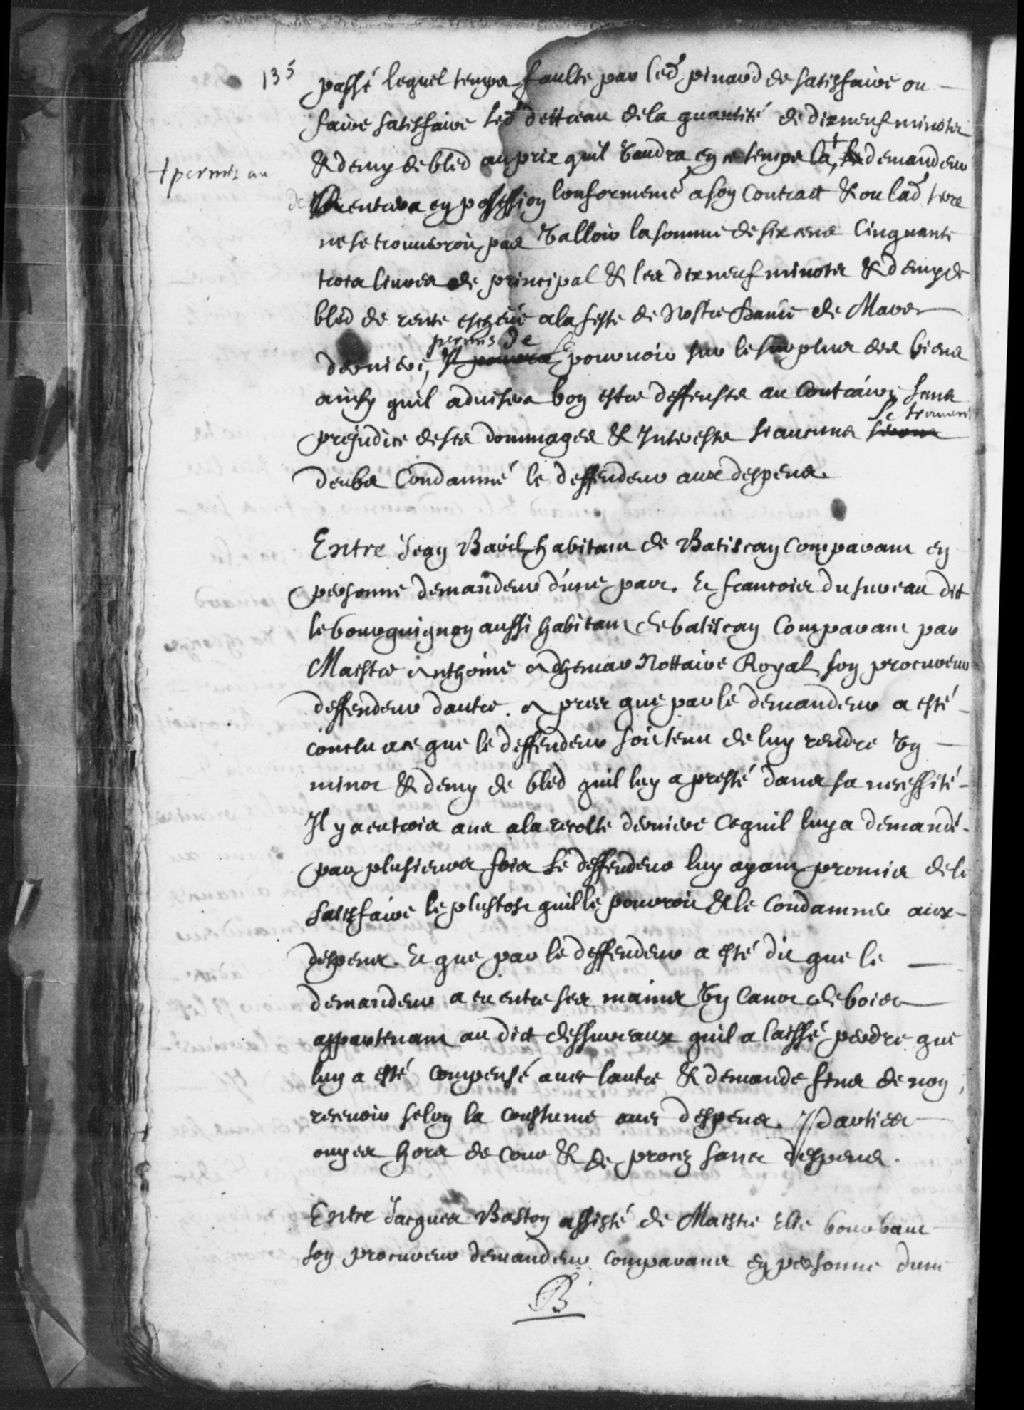 135
passé lequel temps faulte par led pinard de satisfaire ou
faire satisfaire led dettreau de la quantité de dixneuf minotz
& demy de bled au prix quil vaudra en ce temps la + demandeur
+ permis au
de rentrera en possession conformement a son contract & ou lad terre
ne se trouveroit pas valloir la somme de six cens cinquante
trois livres de principal & les dixneuf minotz & demy de
bled de rente escheüe a la feste de Nostre Dame de Mars
permis de se
derniere, pourvoir sur le surplus des biens
ainsy quil advisera bon estre deffenses au contraire sans
se trouvent
prejudice de ses dommages & Interests si aucuns
deubs Condamné le deffendeur aux despens.
Entre Jean Baril habitant de Batiscan Comparant en
personne demandeur d'une part. Et francois dusureau dit
le bourguignon aussi habitant de batiscan Comparant par
Maistre Anthoine Adhemar Nottaire Royal son procureur
deffendeur dautre. Apres que par le demandeur a esté
conclu a ce que le deffendeur soit tenu de luy rendre un
minot & demy de bled quil luy a presté dans sa necessité
Il y a eu trois ans a la recolte derniere Ce quil luy a demandé
par plusieurs fois Le deffendeur luy ayant promis de le
satisfaire le plustost quille pouvroit & le Condamner aux
despens. Et que par le deffendeur a esté dit que le
demandeur a eu entre ses mains un Canot de bois
appartenant au dict dessureaux quil a laissé perdre que
luy a esté compensé avec lautre & demande fins de non
recevoir selon la coustume avec despens. Parties
ouyes hors de Cour & de procez sans despens.
Entre Jacques Baston assisté de Maistre Elie bourbaut
son procureur demandeur comparant en personne dune
B